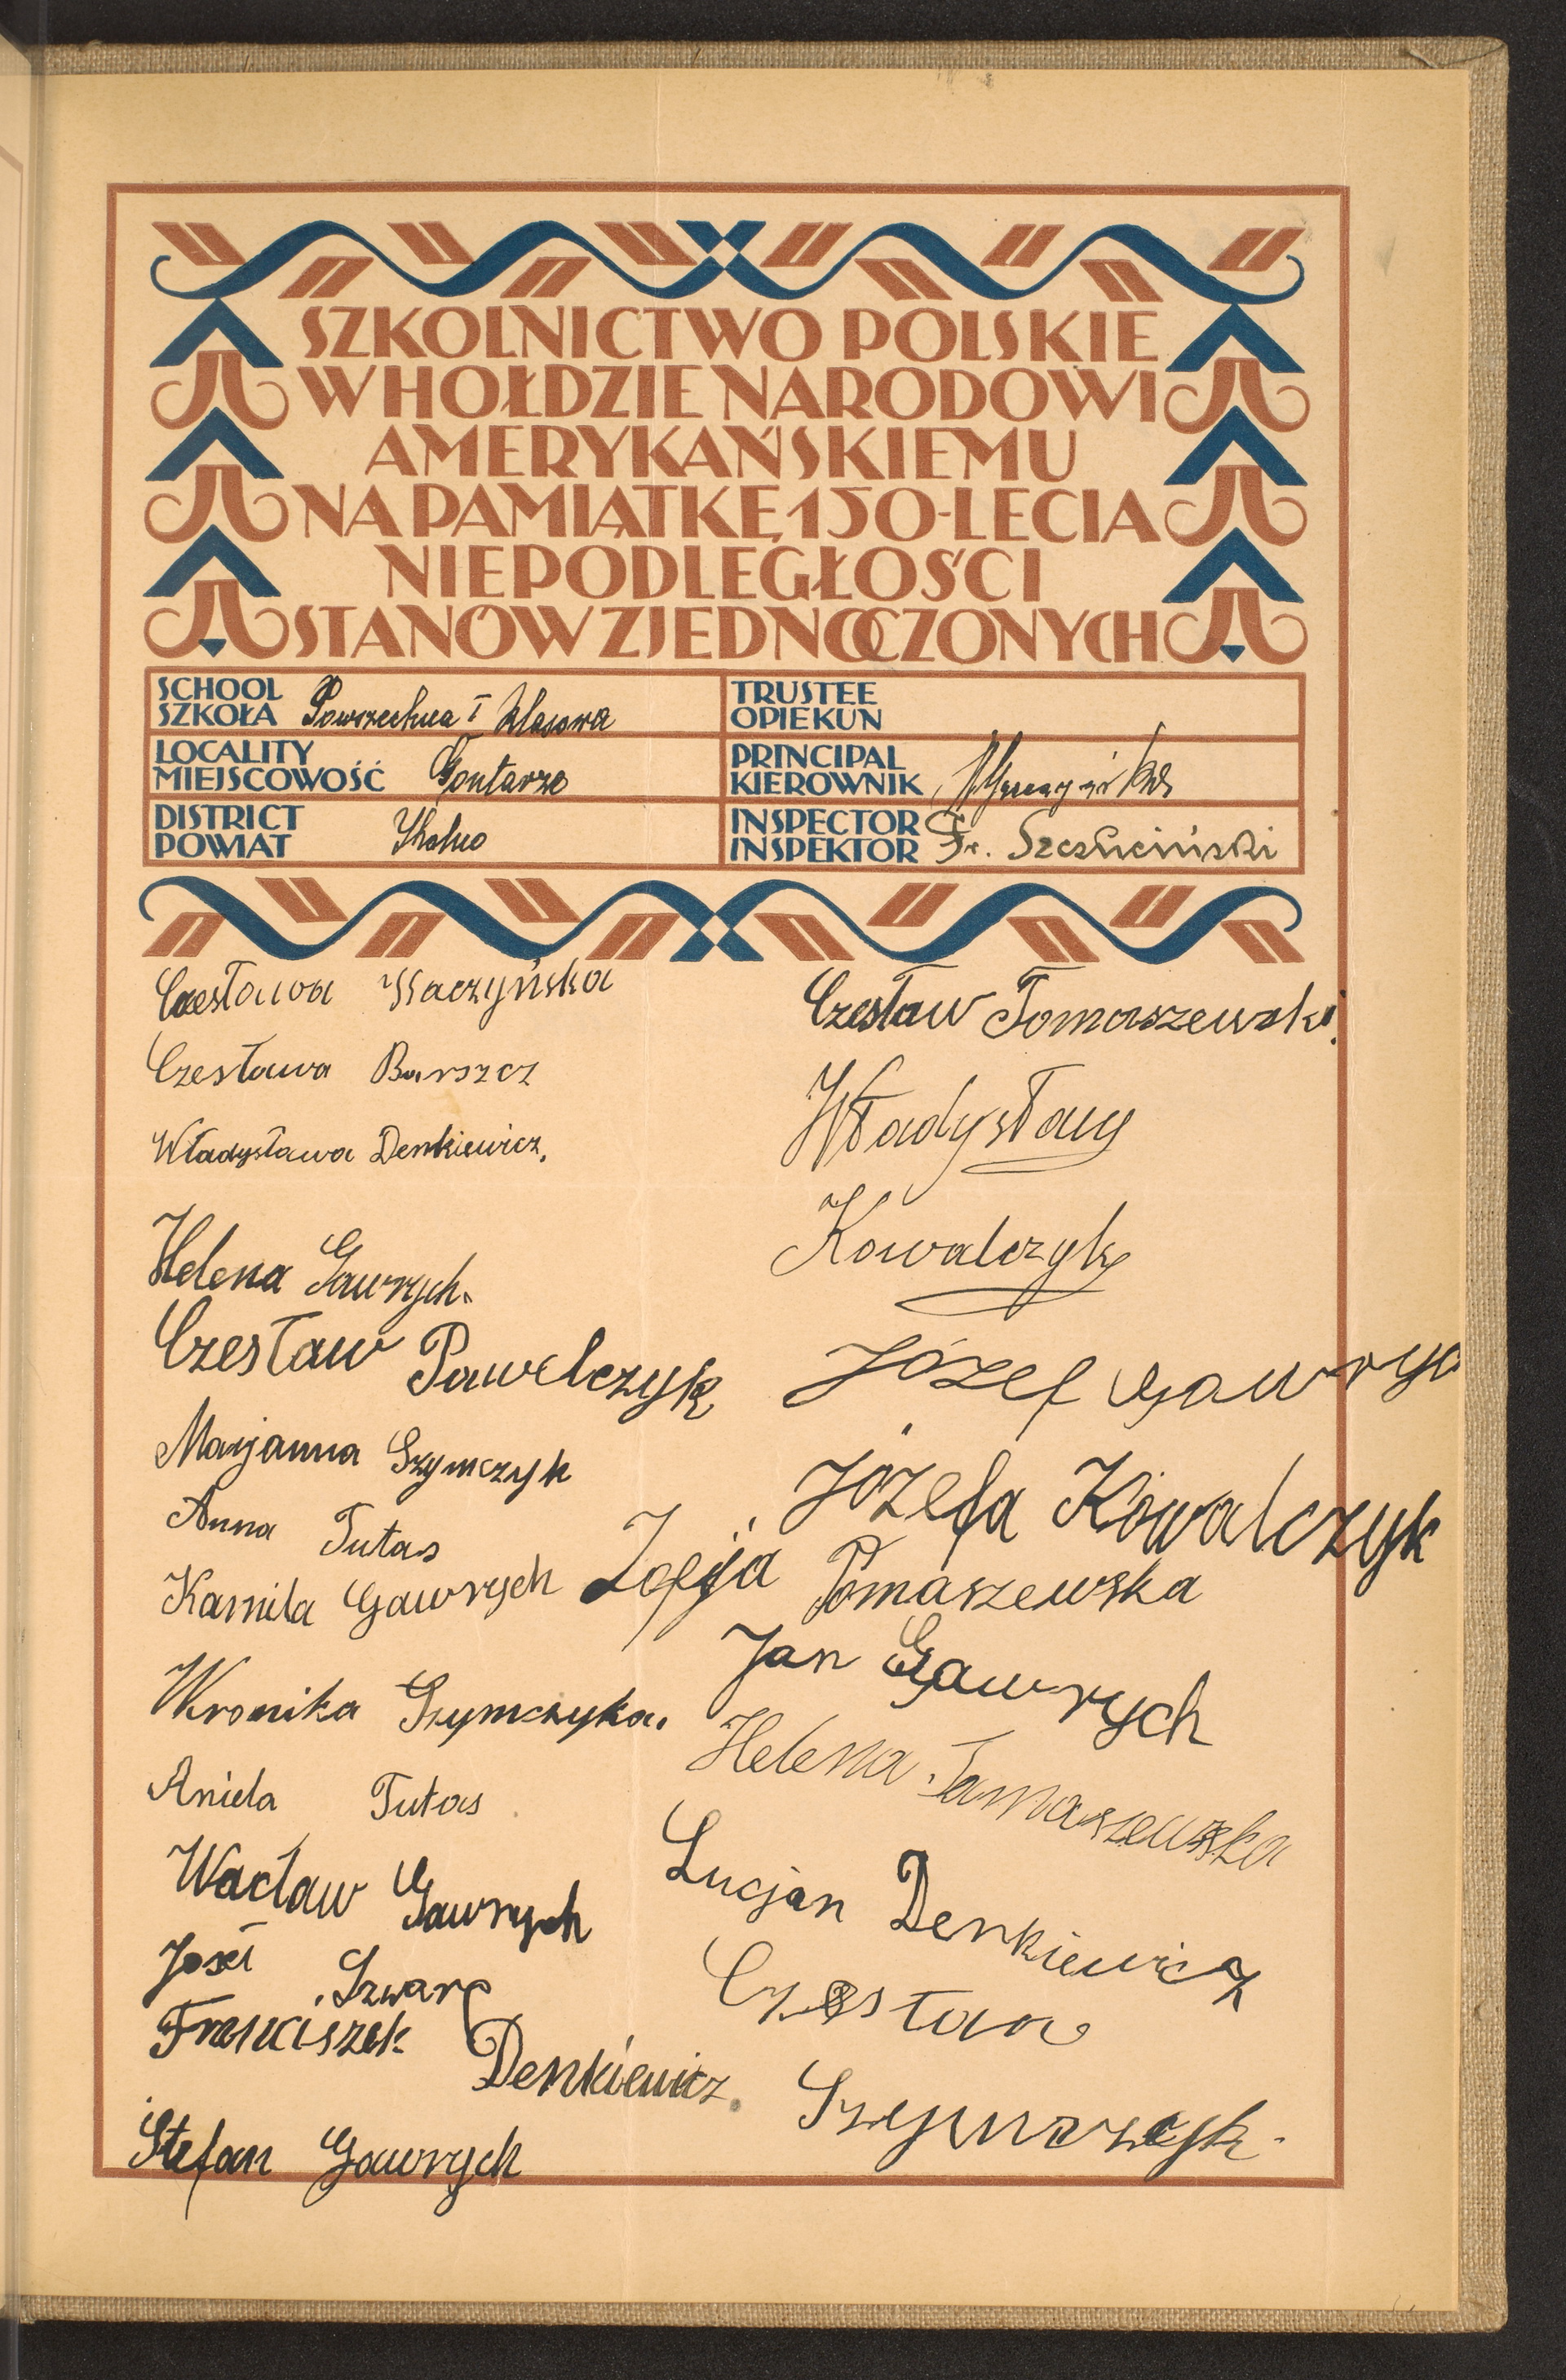 SZKOLNICTWO POLSKIE
W HOŁDZIE NARODOWI
AMERYKAŃSKIEMU
NA PAMIĄTKĘ 150-LECIA
NIEPODLEGŁOŚCI
STANÓW ZJEDNOCZONYCH
SCHOOL
SZKOŁA Powszechna I klasowa
LOCALITY
MIEJSCOWOŚĆ Gontarze
DISTRICT
POWIAT Kolno
TRUSTEE
OPIEKUN
PRINCIPAL
KIEROWNIK
INSPECTOR
INSPEKTOR Fr.
Czesława Kaczyńska
Czesława Barszcz
Władysława Denkiewicz.
Helena Gawrych.
Czesław Pawelczyk
Marjanna Szymczyk
Anna Tutas
Kamila Gawrych
Wronika Szymczyka.
Aniela Tutas
Wacław Gawrych
Józef Szwarc
Franciszek Denkiewicz.
Stefan Gawrych
Czesław Tomaszewski.
Władysław
Kowalczyk
Józef Gawryc
Józefa Kowalczyk
Zofja Tomaszewska
Jan Gawrych
Helena Tamaszewska
Lucjan Denkiewicz
Czesław
Szymczyk.